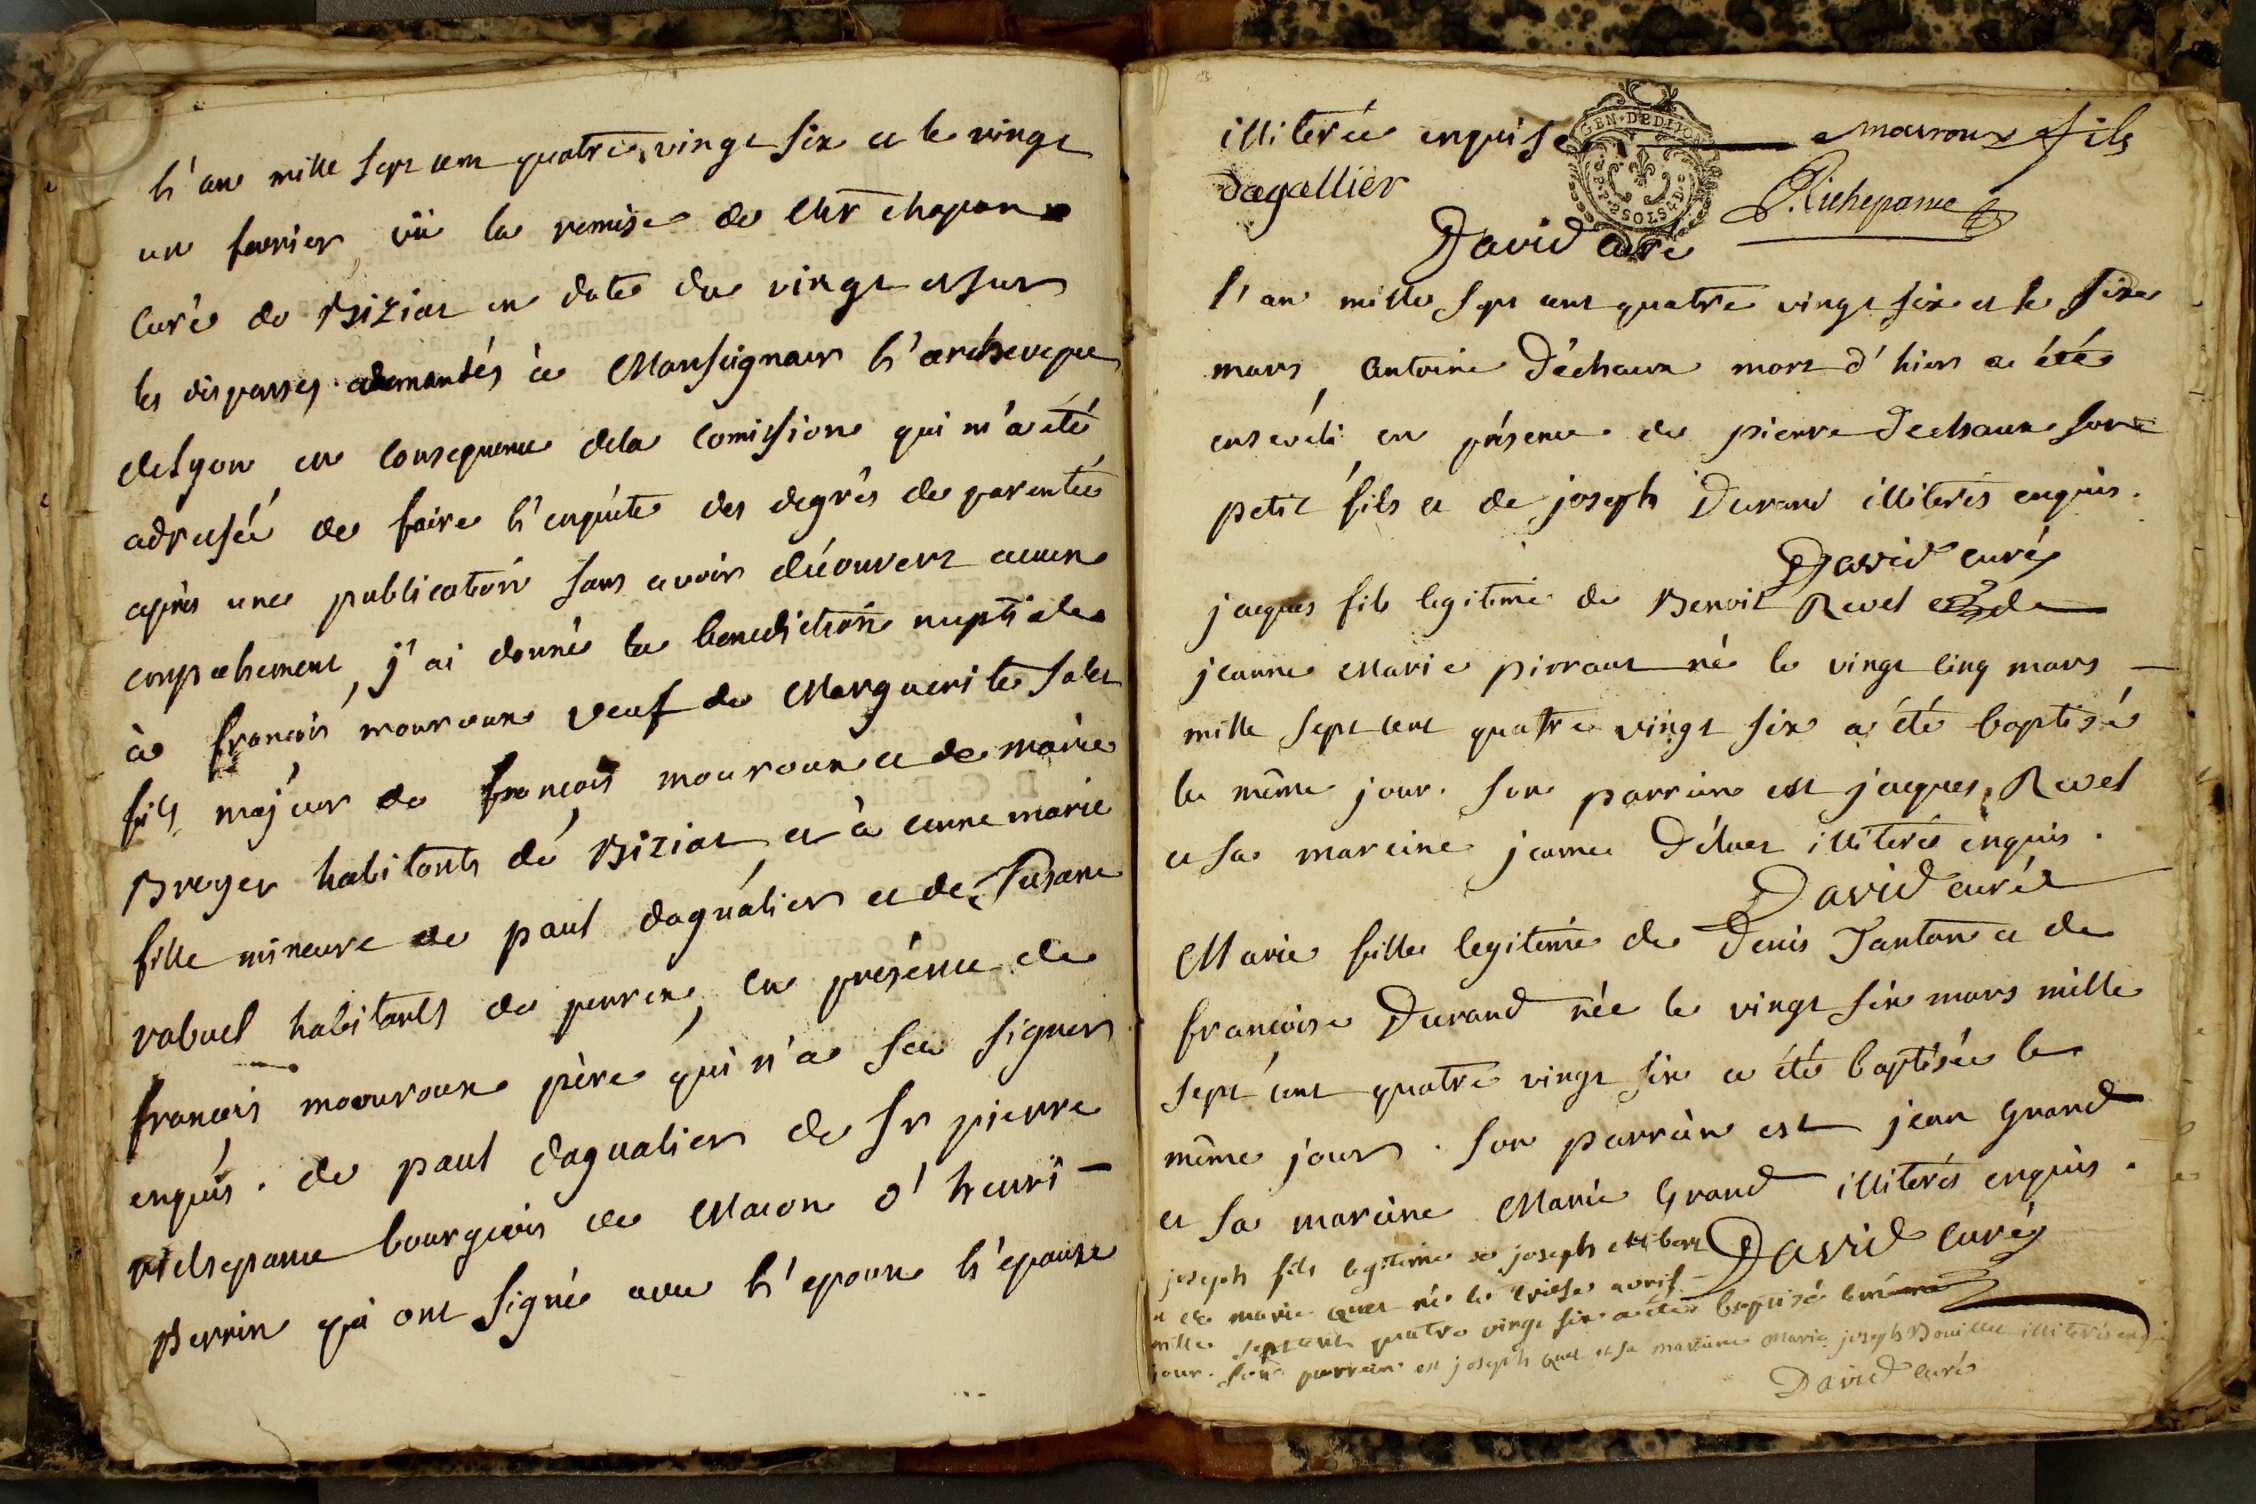 L'an mille sept cent quatre vingt six et le vingt
un fevrier vû la remise de Mr Chapon
Curé de Biziat en date du vingt et sur
les dispenses demandés à Monseigneur l'archeveque
de Lyon en consequence de la comission qui m'a été
adressé de faire l'enquète des degrès de parentée
après une publication sans avoir découvert aucun
empechement, j'ai donné la benediction nuptiale
à françois mouroux veuf de Marguerite Salet
fils majeur de françois mouroux et de marie
Broyer habitants de Biziat et à anne marie
fille mineure de paul dagualier et de Susane
rabuel habitants de perrex, en présence de
françois mouuroux père qui n'a seu signer
enquis. de paul dagualier de Sr pierre
richepanse bourgeois de Macon d'henri
Perrin qui ont signé avec l'epoux l'epouse
illiterée enquise mouroux fils
dagallier P. Richepanse
David curé
L'an mille sept cent quatre vingt six et le six
mars, antoine déchaux mort d'hier a été
enseveli en présence de pierre dechaux son
petit fils et de joseph Durand illiterés enquis.
David curé
jacques fils legitime de Benoit Revel et de
jeanne Marie pirraut né le vingt cinq mars
mille sept cent quatre vingt six a été baptisé
le même jour. son parrain est jacques Revel
et sa mareine jeanne illiterés enquis.
David curé
Marie fille legitime de Denis Janton et de
françoise Durand née le vingt six mars mille
sept cent quatre vingt six a été baptisée le
même jour. son parrain est jean Grand
et sa mareine Marie Grand illiterés enquis.
David curé
joseph fils legitime de joseph
et de marie né le treise avril
mille sept cent quatre vingt six a été baptisé le même
jour. son parrain est joseph et sa maraine marie joseph Bouillet illiterés enquis
David curé